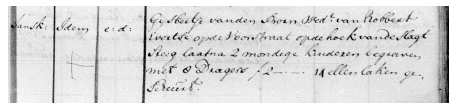 Jansk: Idem e:d: Gijsbertje vanden Born Wedᵉ van Robbert
Evertse op de Voorstraat op de hoek van de Slagt
Steeg laat na 2 mondige kinderen begraven
met 8 Dragers f2 —— 14 ellen laken ge-
scheurt.